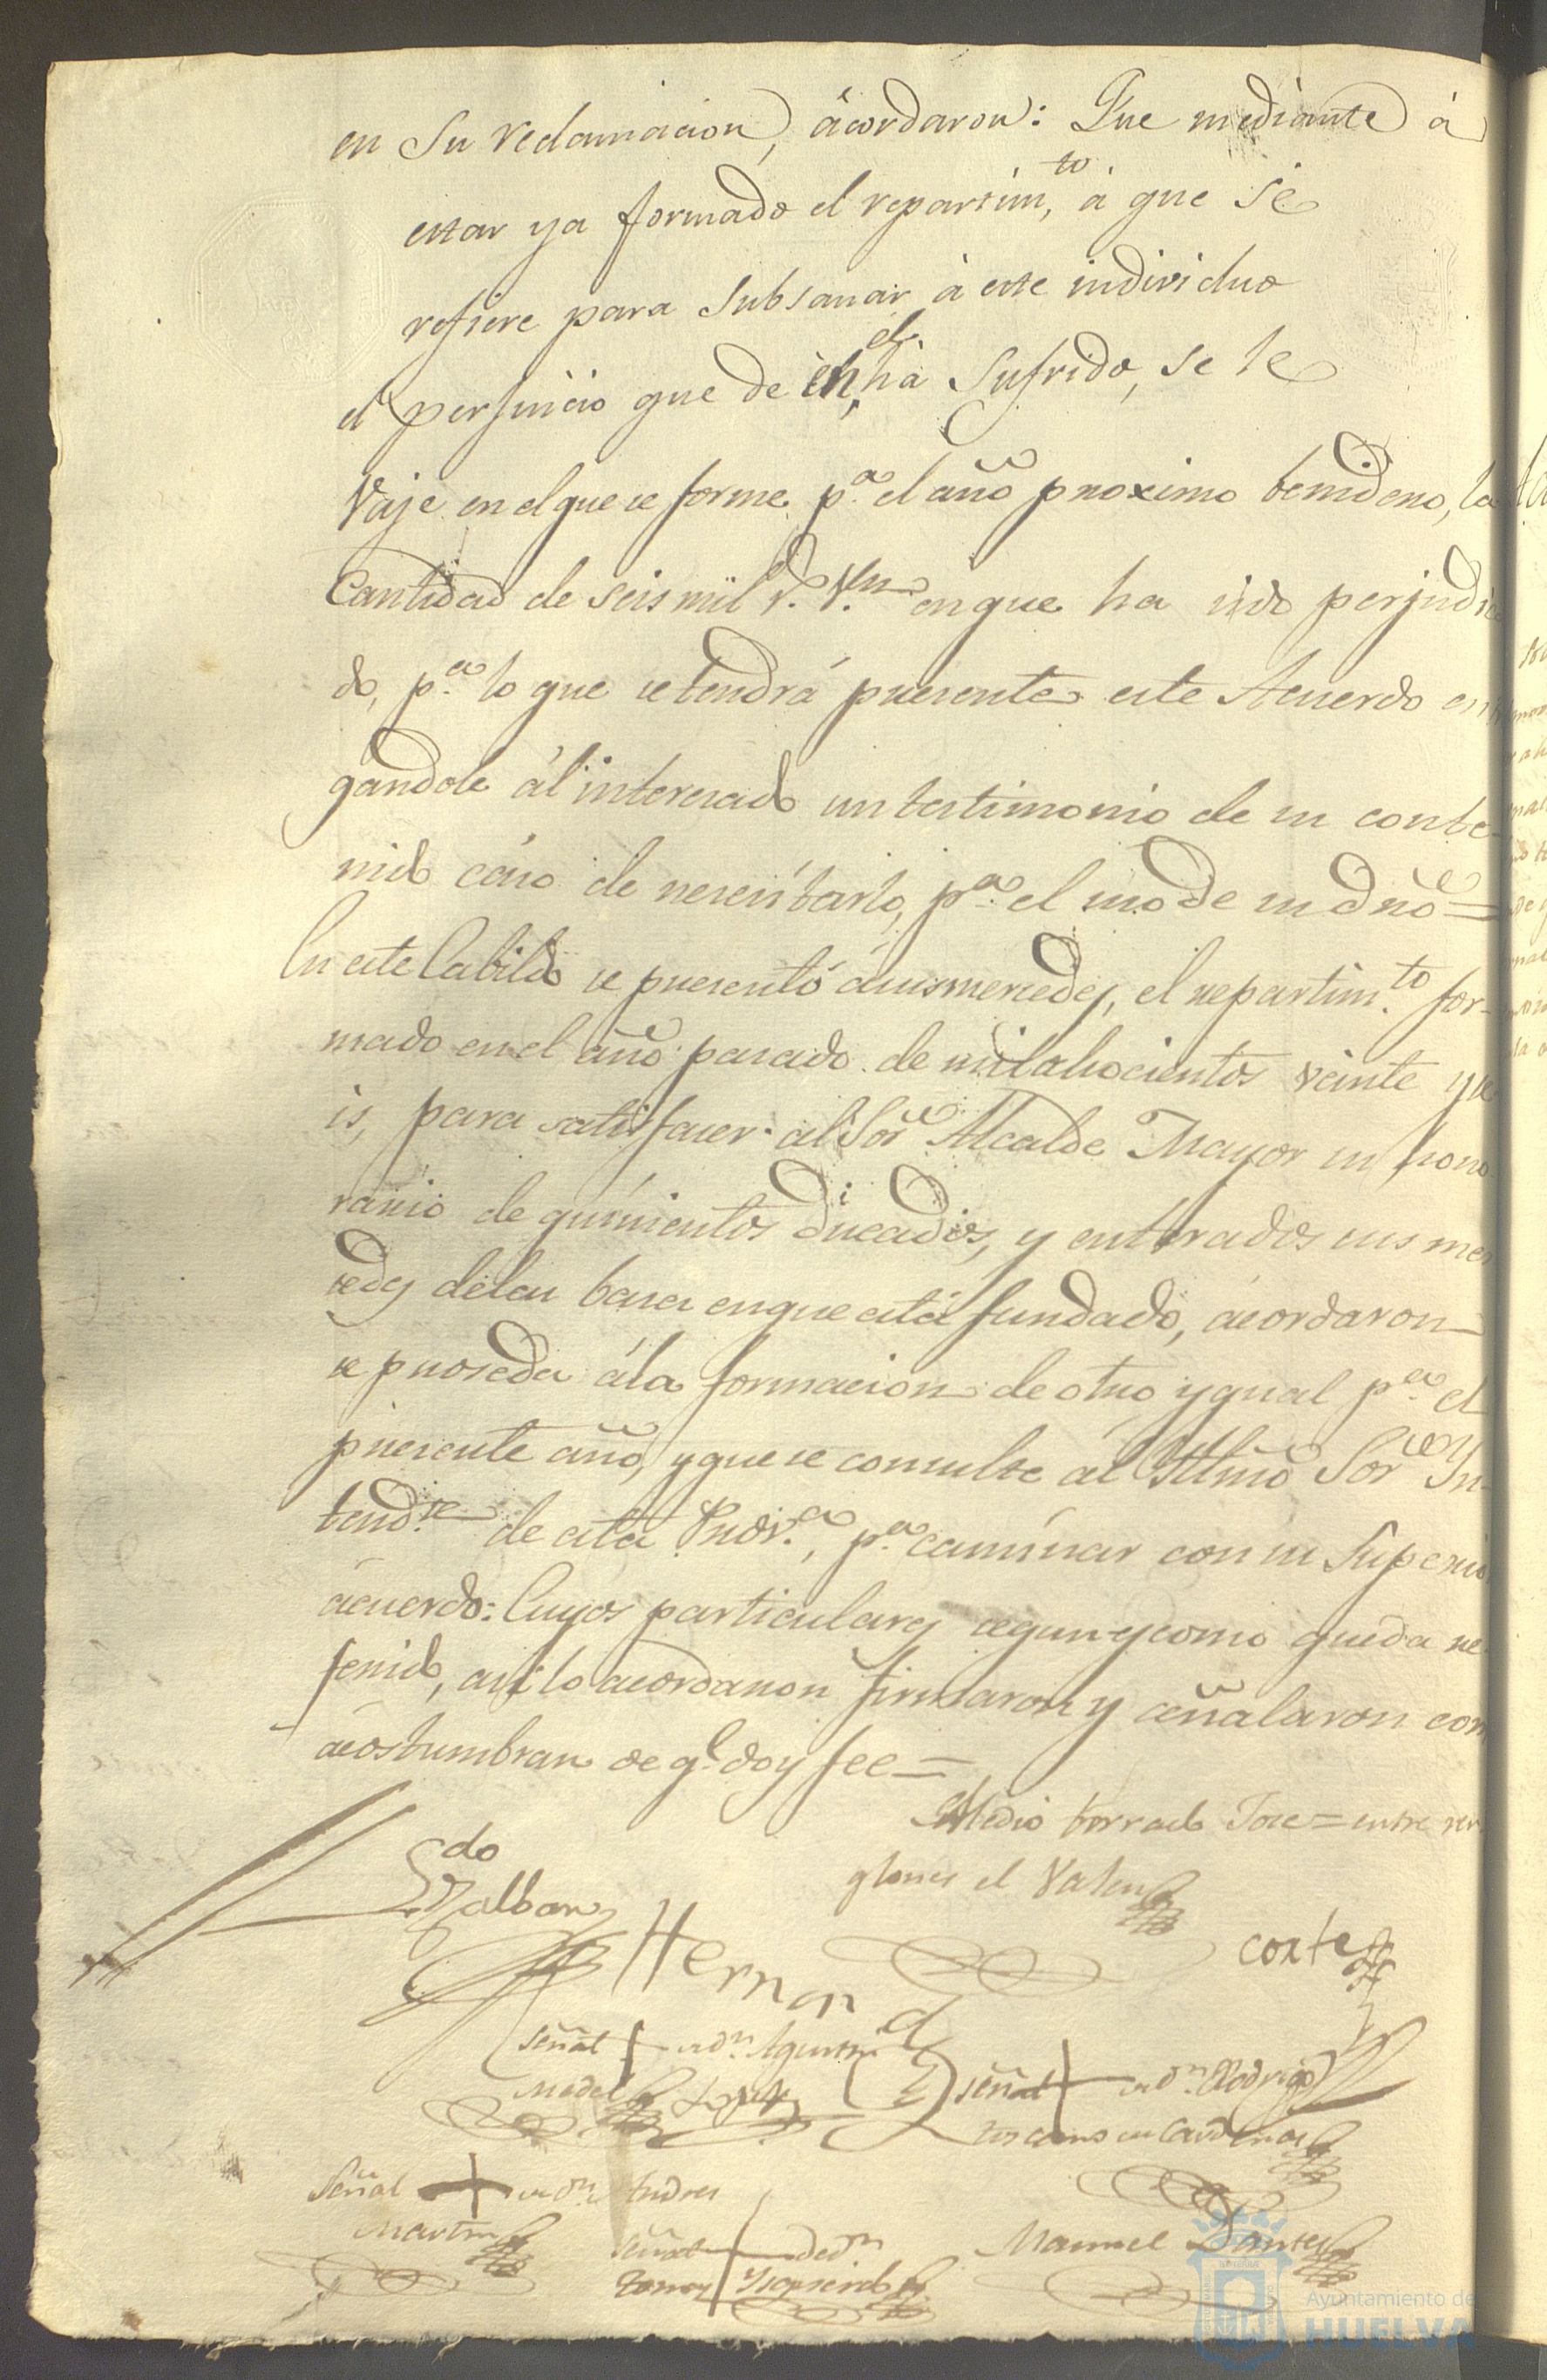 en su reclamacion, ácordaron: Que mediante á
estar ya formado el repartim.to, á que se
refiere para subsanar á este individuo
el perjuicio que de él há sufrido, se le
vaje en el que se forme p.a el año proximo benidero, la
Cantidad de seis mil r.s v.n en que ha sido perjudica
do, p.a lo que se tendrá presente este Acuerdo en
gandole ál interesado un testimonio de su conte-
nido cáso de nesesitarlo, p.a el uso de su dro =
En este Cabildo se presentó ásus mersedes, el repartim.to for-
mado en el año pasado de mil ochocientos veinte y se
is, para satisfaser al Sor Alcalde Mayor su hono
rario de quinientos Ducados, y enterados sus mer
sedes delas bases en que está fundado, ácordaron
se proseda ála formacion de otro ygual p.a el
presente año, y que se consulte ál Yllmo Sor Yn-
tend.te de esta Prov.a, p.a caminar con su Superior
ácuerdo: Cuyos particulares segun y como queda re-
ferido, así lo acordaron firmaron y señalaron como
ácostumbran de q.e doy fee =
Medio borrado Jose = entre ren
glones el Vale
Ldo
Zalban
Hernand
Cortes
señal + de dn Agustin
señal + de dn Rodrigo
toscano de Cardenas
Señal + de dn Andres
Martin
Señal + de dn
Tomas Yzquierdo
Manuel
Ayuntamiento de
HUELVA